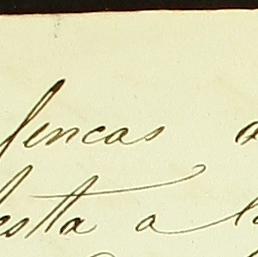 fincas a
esta a l